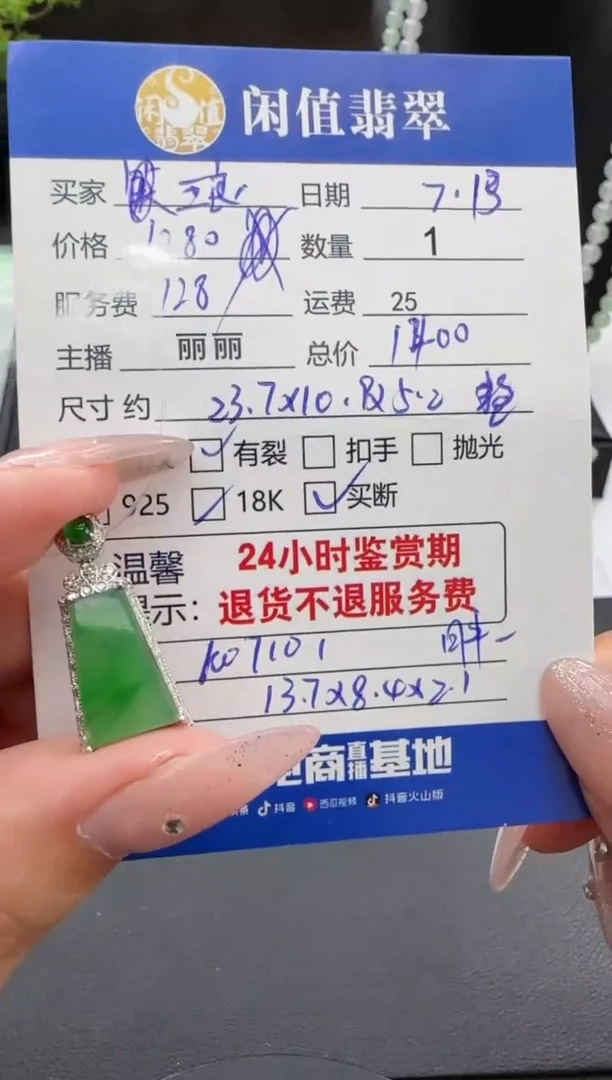 闲值翡翠
买家 日期 7.13
价格 1280 数量 1
服务费 128 运费 25
主播 丽丽 总价 1400
尺寸 约 23.7x10.8x5.2
有裂 扣手 抛光
925 18K 买断
温馨 24小时鉴赏期
提示: 退货不退服务费
13.7x8.4x2.1
电商直播基地
抖音 西瓜视频 抖音火山版